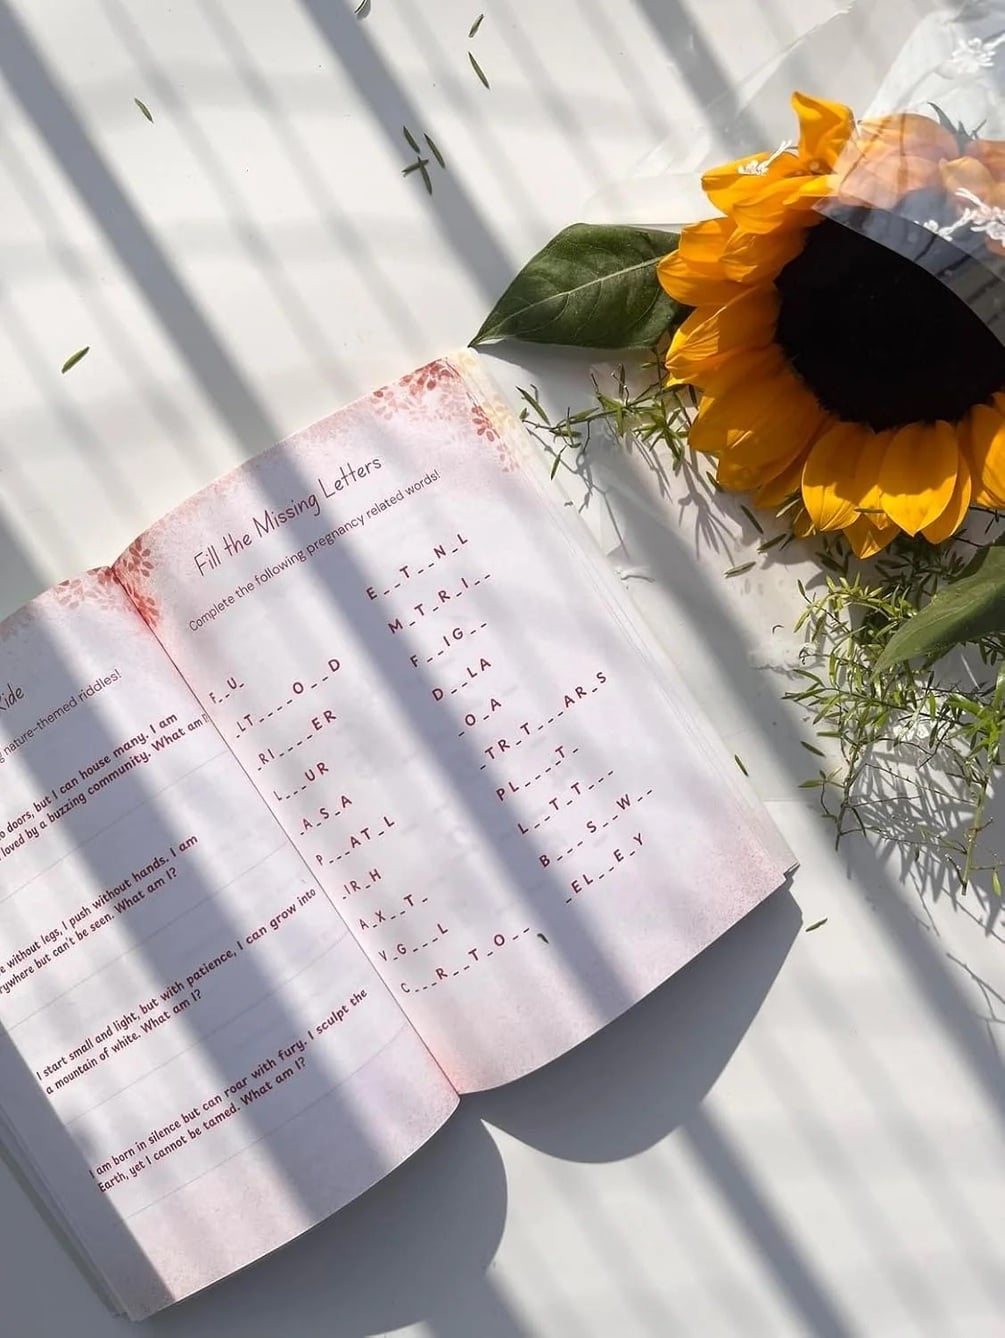 Ride
nature-themed riddles!
doors, but I can house many. I am
loved by a buzzing community. What am
without legs, I push without hands. I am
but can't be seen. What am I?
I start small and light, but with patience, I can grow into
a mountain of white. What am I?
I am born in silence but can roar with fury. I sculpt the
Earth, yet I cannot be tamed. What am I?
Fill the Missing Letters
Complete the following pregnancy related words!
F_U_
_LT____O__D
_RI____ER
L___UR
_A_S_A
P___AT_L
_IR_H
A_X__T_
V_G___L
C___R__T_O__
E__T__N_L
M_T_R_I__
F__IG__
D__LA
_O_A
_TR_T___AR_S
PL____T_
L__T_T___
B___S_W__
_EL__E_Y